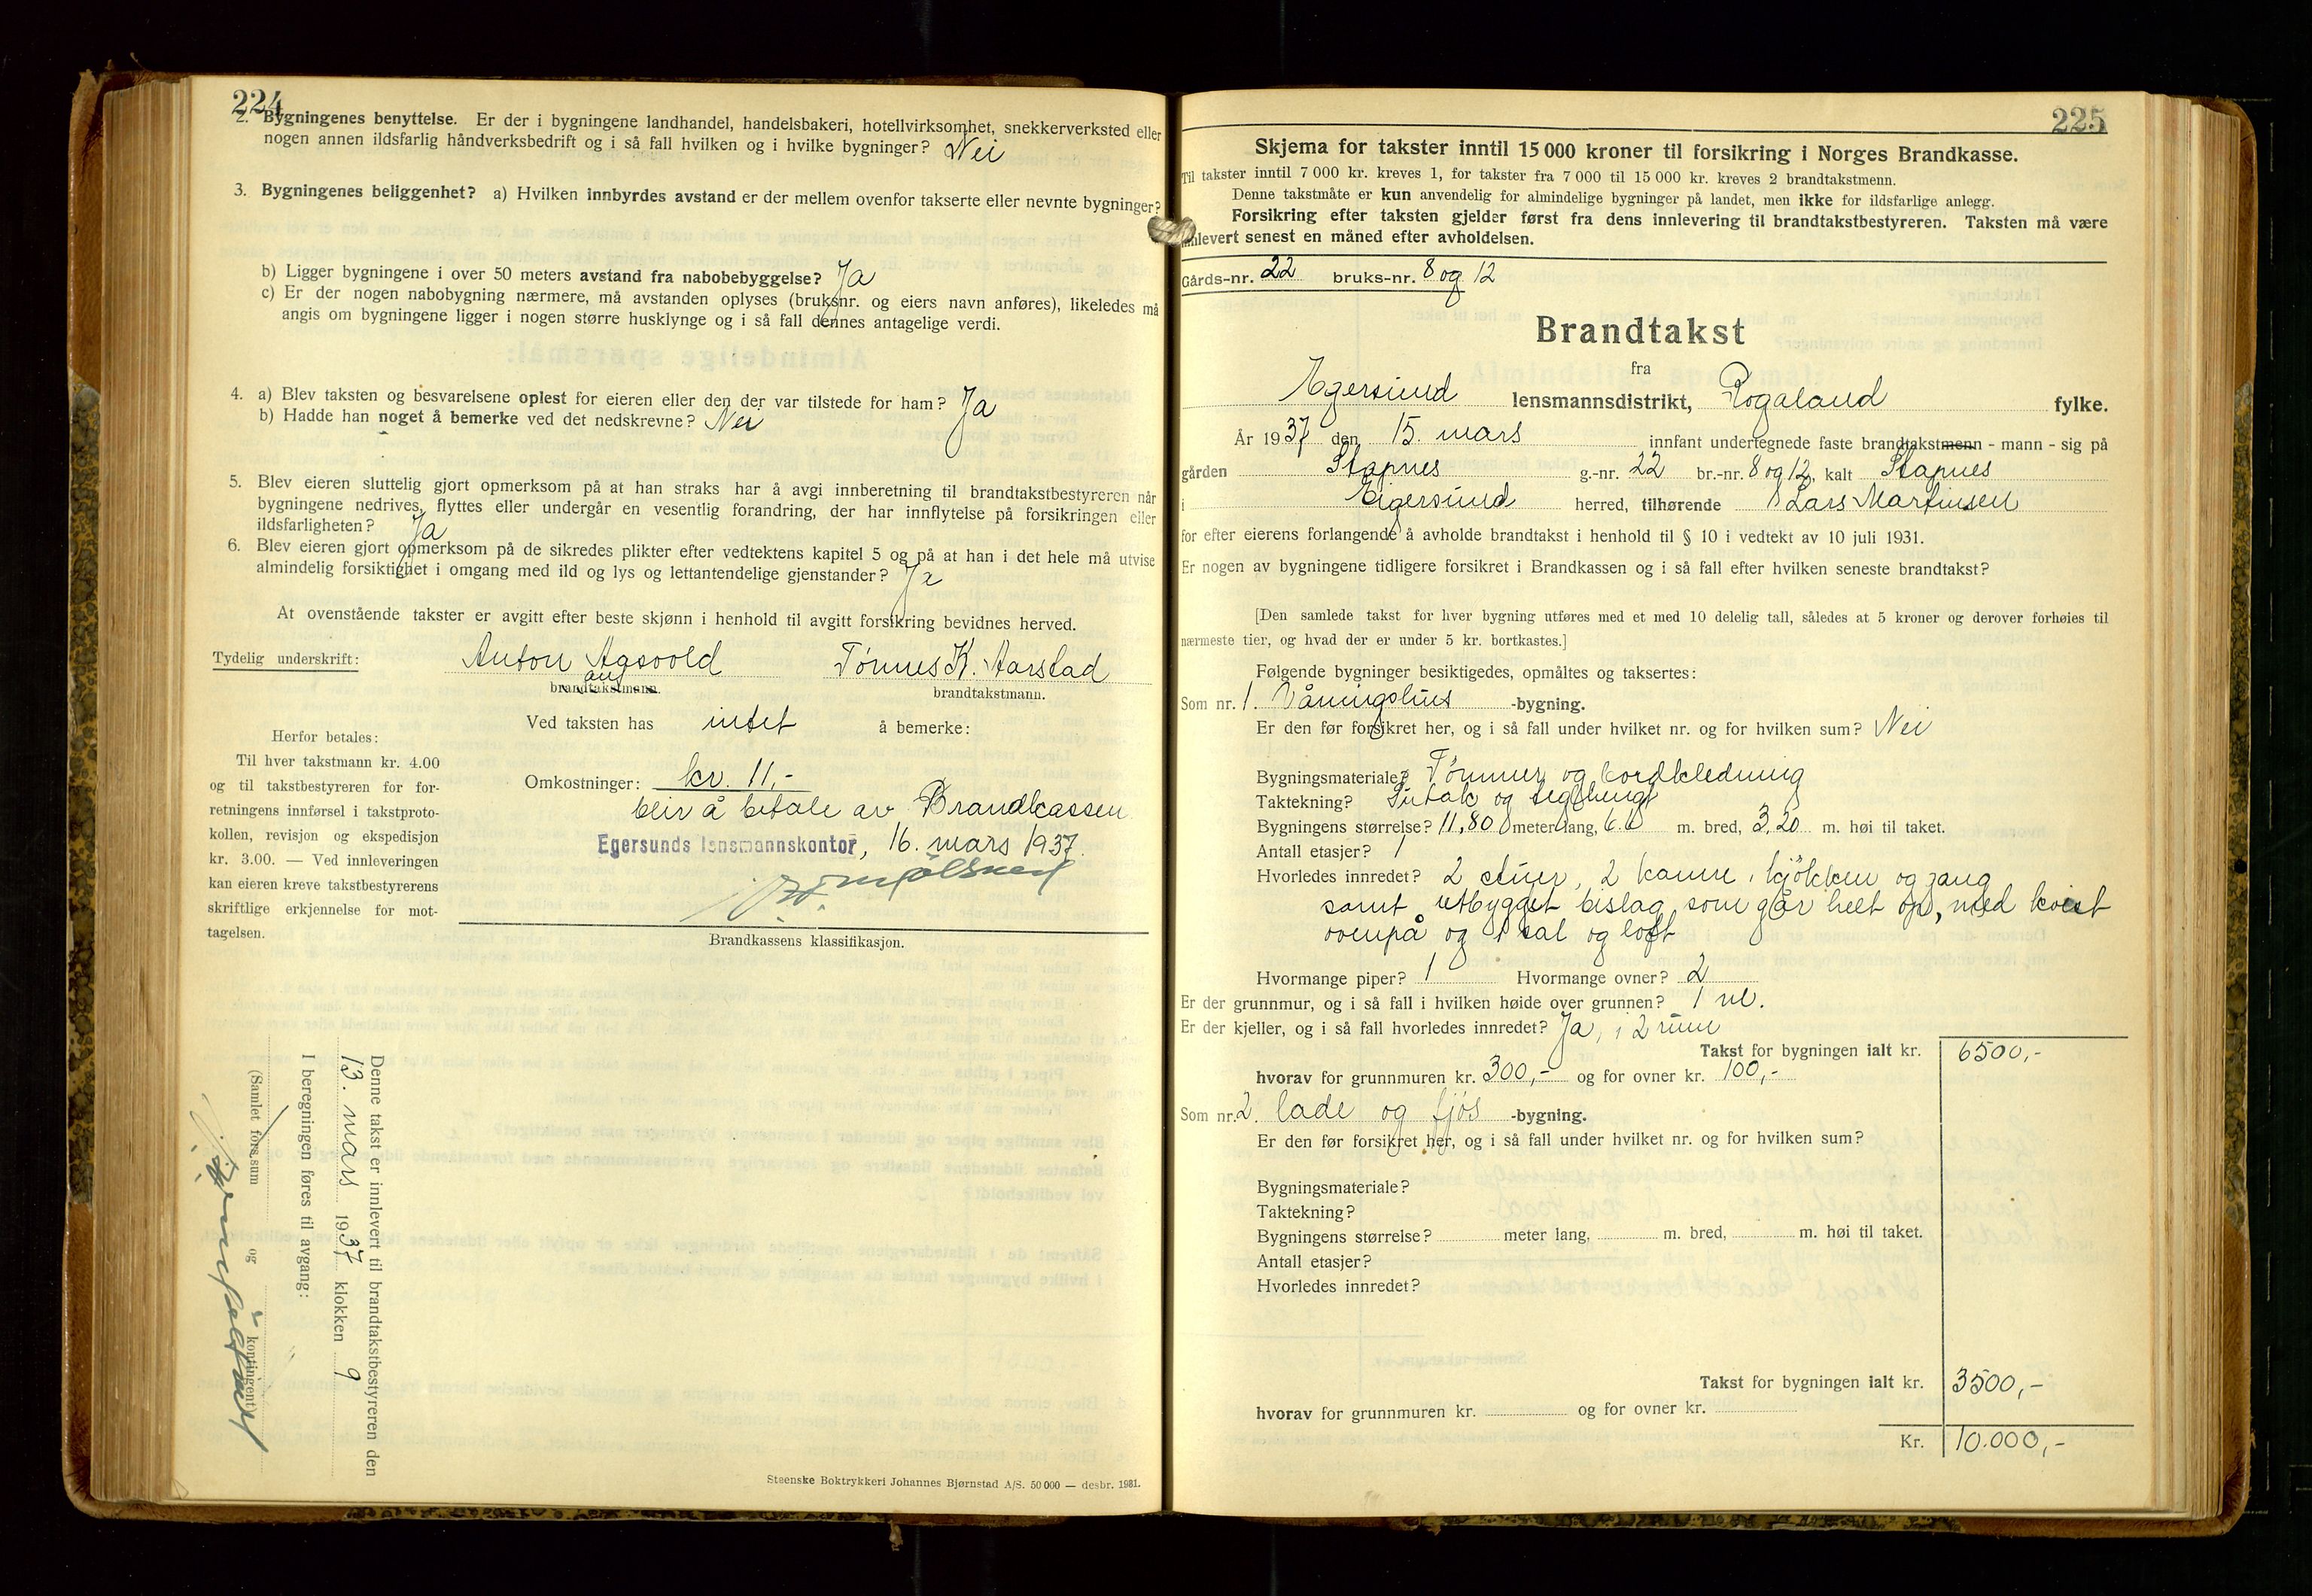 224
2. Bygningenes benyttelse. Er der i bygningene landhandel, handelsbakeri, hotellvirksomhet, snekkerverksted eller
nogen annen ildsfarlig håndverksbedrift og i så fall hvilken og i hvilke bygninger? Nei
3. Bygningenes beliggenhet? a) Hvilken innbyrdes avstand er der mellem ovenfor takserte eller nevnte bygninger?
b) Ligger bygningene i over 50 meters avstand fra nabobebyggelse? Ja
c) Er der nogen nabobygning nærmere, må avstanden oplyses (bruksnr. og eiers navn anføres), likeledes må
angis om bygningene ligger i nogen større husklynge og i så fall dennes antagelige verdi.
4. a) Blev taksten og besvarelsene oplest for eieren eller den der var tilstede for ham? Ja
b) Hadde han noget å bemerke ved det nedskrevne? Nei
5. Blev eieren sluttelig gjort opmerksom på at han straks har å avgi innberetning til brandtakstbestyreren når
bygningene nedrives, flyttes eller undergår en vesentlig forandring, der har innflytelse på forsikringen eller
ildsfarligheten? Ja
6. Blev eieren gjort opmerksom på de sikredes plikter efter vedtektens kapitel 5 og på at han i det hele må utvise
almindelig forsiktighet i omgang med ild og lys og lettantendelige gjenstander? Ja
At ovenstående takster er avgitt efter beste skjønn i henhold til avgitt forsikring bevidnes herved.
Tydelig underskrift: Anton Aasvold Tønnes K. Aarstad
brandtakstmann. brandtakstmann.
Ved taksten has intet å bemerke:
Herfor betales:
Til hver takstmann kr. 4.00
og til takstbestyreren for for-
retningens innførsel i takstproto-
kollen, revisjon og ekspedisjon
kr. 3.00. — Ved innleveringen
kan eieren kreve takstbestyrerens
skriftlige erkjennelse for mot-
tagelsen.
Omkostninger: kr. 11,-
blir å betale av Brandkassen
Egersunds lensmannskontor, 16. mars 1937.
Brandkassens klassifikasjon.
Denne takst er innlevert til brandtakstbestyreren den
13. mars 1937 klokken 9
I beregningen føres til avgang:
(Samlet fors.sum og kontingent)
Steenske Boktrykkeri Johannes Bjørnstad A/S. 50 000 — desbr. 1931.
225
Skjema for takster inntil 15 000 kroner til forsikring i Norges Brandkasse.
Til takster inntil 7 000 kr. kreves 1, for takster fra 7 000 til 15 000 kr. kreves 2 brandtakstmenn.
Denne takstmåte er kun anvendelig for almindelige bygninger på landet, men ikke for ildsfarlige anlegg.
Forsikring efter taksten gjelder først fra dens innlevering til brandtakstbestyreren. Taksten må være
innlevert senest en måned efter avholdelsen.
Gårds-nr. 22 bruks-nr. 8 og 12
Brandtakst
fra
Egersund lensmannsdistrikt, Rogaland fylke.
År 1937 den 15. mars innfant undertegnede faste brandtakstmenn - mann - sig på
gården Stapnes g.-nr. 22 br.-nr. 8 og 12, kalt Stapnes
i Eigersund herred, tilhørende Lars Martinsen
for efter eierens forlangende å avholde brandtakst i henhold til § 10 i vedtekt av 10 juli 1931.
Er nogen av bygningene tidligere forsikret i Brandkassen og i så fall efter hvilken seneste brandtakst?
[Den samlede takst for hver bygning utføres med et med 10 delelig tall, således at 5 kroner og derover forhøies til
nærmeste tier, og hvad der er under 5 kr. bortkastes.]
Følgende bygninger besiktigedes, opmåltes og taksertes:
Som nr. 1. Våningshus -bygning.
Er den før forsikret her, og i så fall under hvilket nr. og for hvilken sum? Nei
Bygningsmateriale? Tømmer og bordkledning
Taktekning? Sutak og teglhengt
Bygningens størrelse? 11,80 meter lang, 6.6 m. bred, 3,20 m. høi til taket.
Antall etasjer? 1
Hvorledes innredet? 2 stuer, 2 kamre, kjökken og gang
samt utbygget bislag som går helt op, med kvist
ovenpå og 1 sal og loft
Hvormange piper? 1 Hvormange ovner? 2
Er der grunnmur, og i så fall i hvilken høide over grunnen? 1 m.
Er der kjeller, og i så fall hvorledes innredet? Ja, i 2 rum
Takst for bygningen ialt kr. 6500,-
hvorav for grunnmuren kr. 300,- og for ovner kr. 100,-
Som nr. 2. lade og fjös -bygning.
Er den før forsikret her, og i så fall under hvilket nr. og for hvilken sum?
Bygningsmateriale?
Taktekning?
Bygningens størrelse? meter lang, m. bred, m. høi til taket.
Antall etasjer?
Hvorledes innredet?
Takst for bygningen ialt kr. 3500,-
hvorav for grunnmuren kr. og for ovner kr.
Kr. 10.000,-